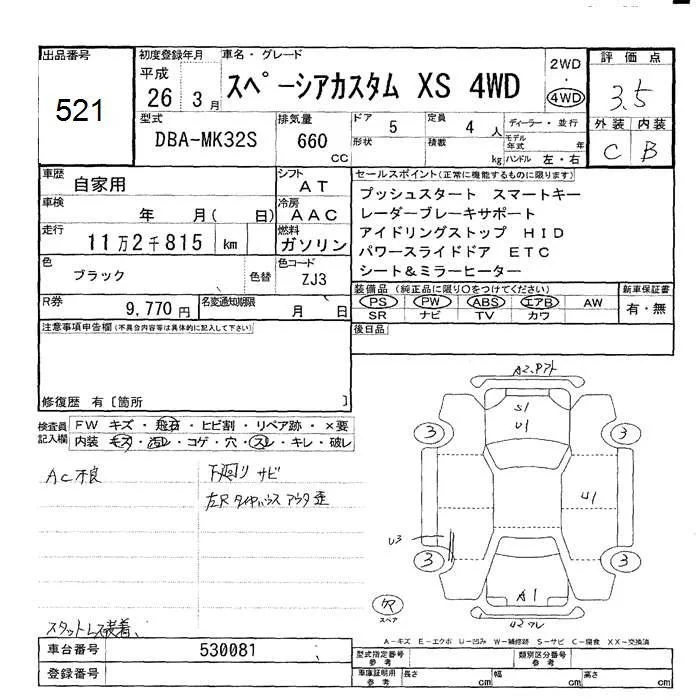 出品番号
521
初度登録年月
平成
26 3月
車名・グレード
スペーシアカスタム XS 4WD
2WD
・
4WD
評価点
3.5
外装 内装
C B
型式
DBA-MK32S
排気量
660
CC
ドア 5
形状
定員 4人
積載 kg
ディーラー・並行
モデル年式 年
ハンドル 左・右
車歴
自家用
シフト
AT
車検
年 月( 日)
冷房
AAC
走行
11万2千815 km
燃料
ガソリン
色
ブラック
色替
色コード
ZJ3
R券
9,770円
名変通知期限
月 日
セールスポイント(正常に機能するものに限ります)
プッシュスタート スマートキー
レーダーブレーキサポート
アイドリングストップ HID
パワースライドドア ETC
シート&ミラーヒーター
装備品(純正品に限り○をつけてください)
PS PW ABS エアB AW
SR ナビ TV カワ
新車保証書
有・無
後日品
注意事項申告欄(不具合内容等は具体的に記入して下さい)
修復歴 有〔箇所 〕
検査員
記入欄
FW キズ・飛石・ヒビ割・リペア跡・×要
内装 キズ・汚レ・コゲ・穴・スレ・キレ・破レ
AC不良
下廻りサビ
左Rタイヤハウスアウタ歪
スタットレス装着
A2.Pアト
S1
U1
3 3
U1
U3
3 3
A1
欠
スペア
U2ワレ
A-キズ E-エクボ U-凹み W-補修跡 S-サビ C-腐食 XX-交換済
車台番号
530081
登録番号
型式指定番号
参考
類別区分番号
参考
車庫証明用
参考
長さ cm 幅 cm 高さ cm